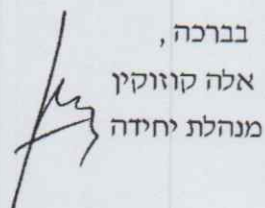 בברכה ,
אלה קוזוקין
מנהלת יחידה